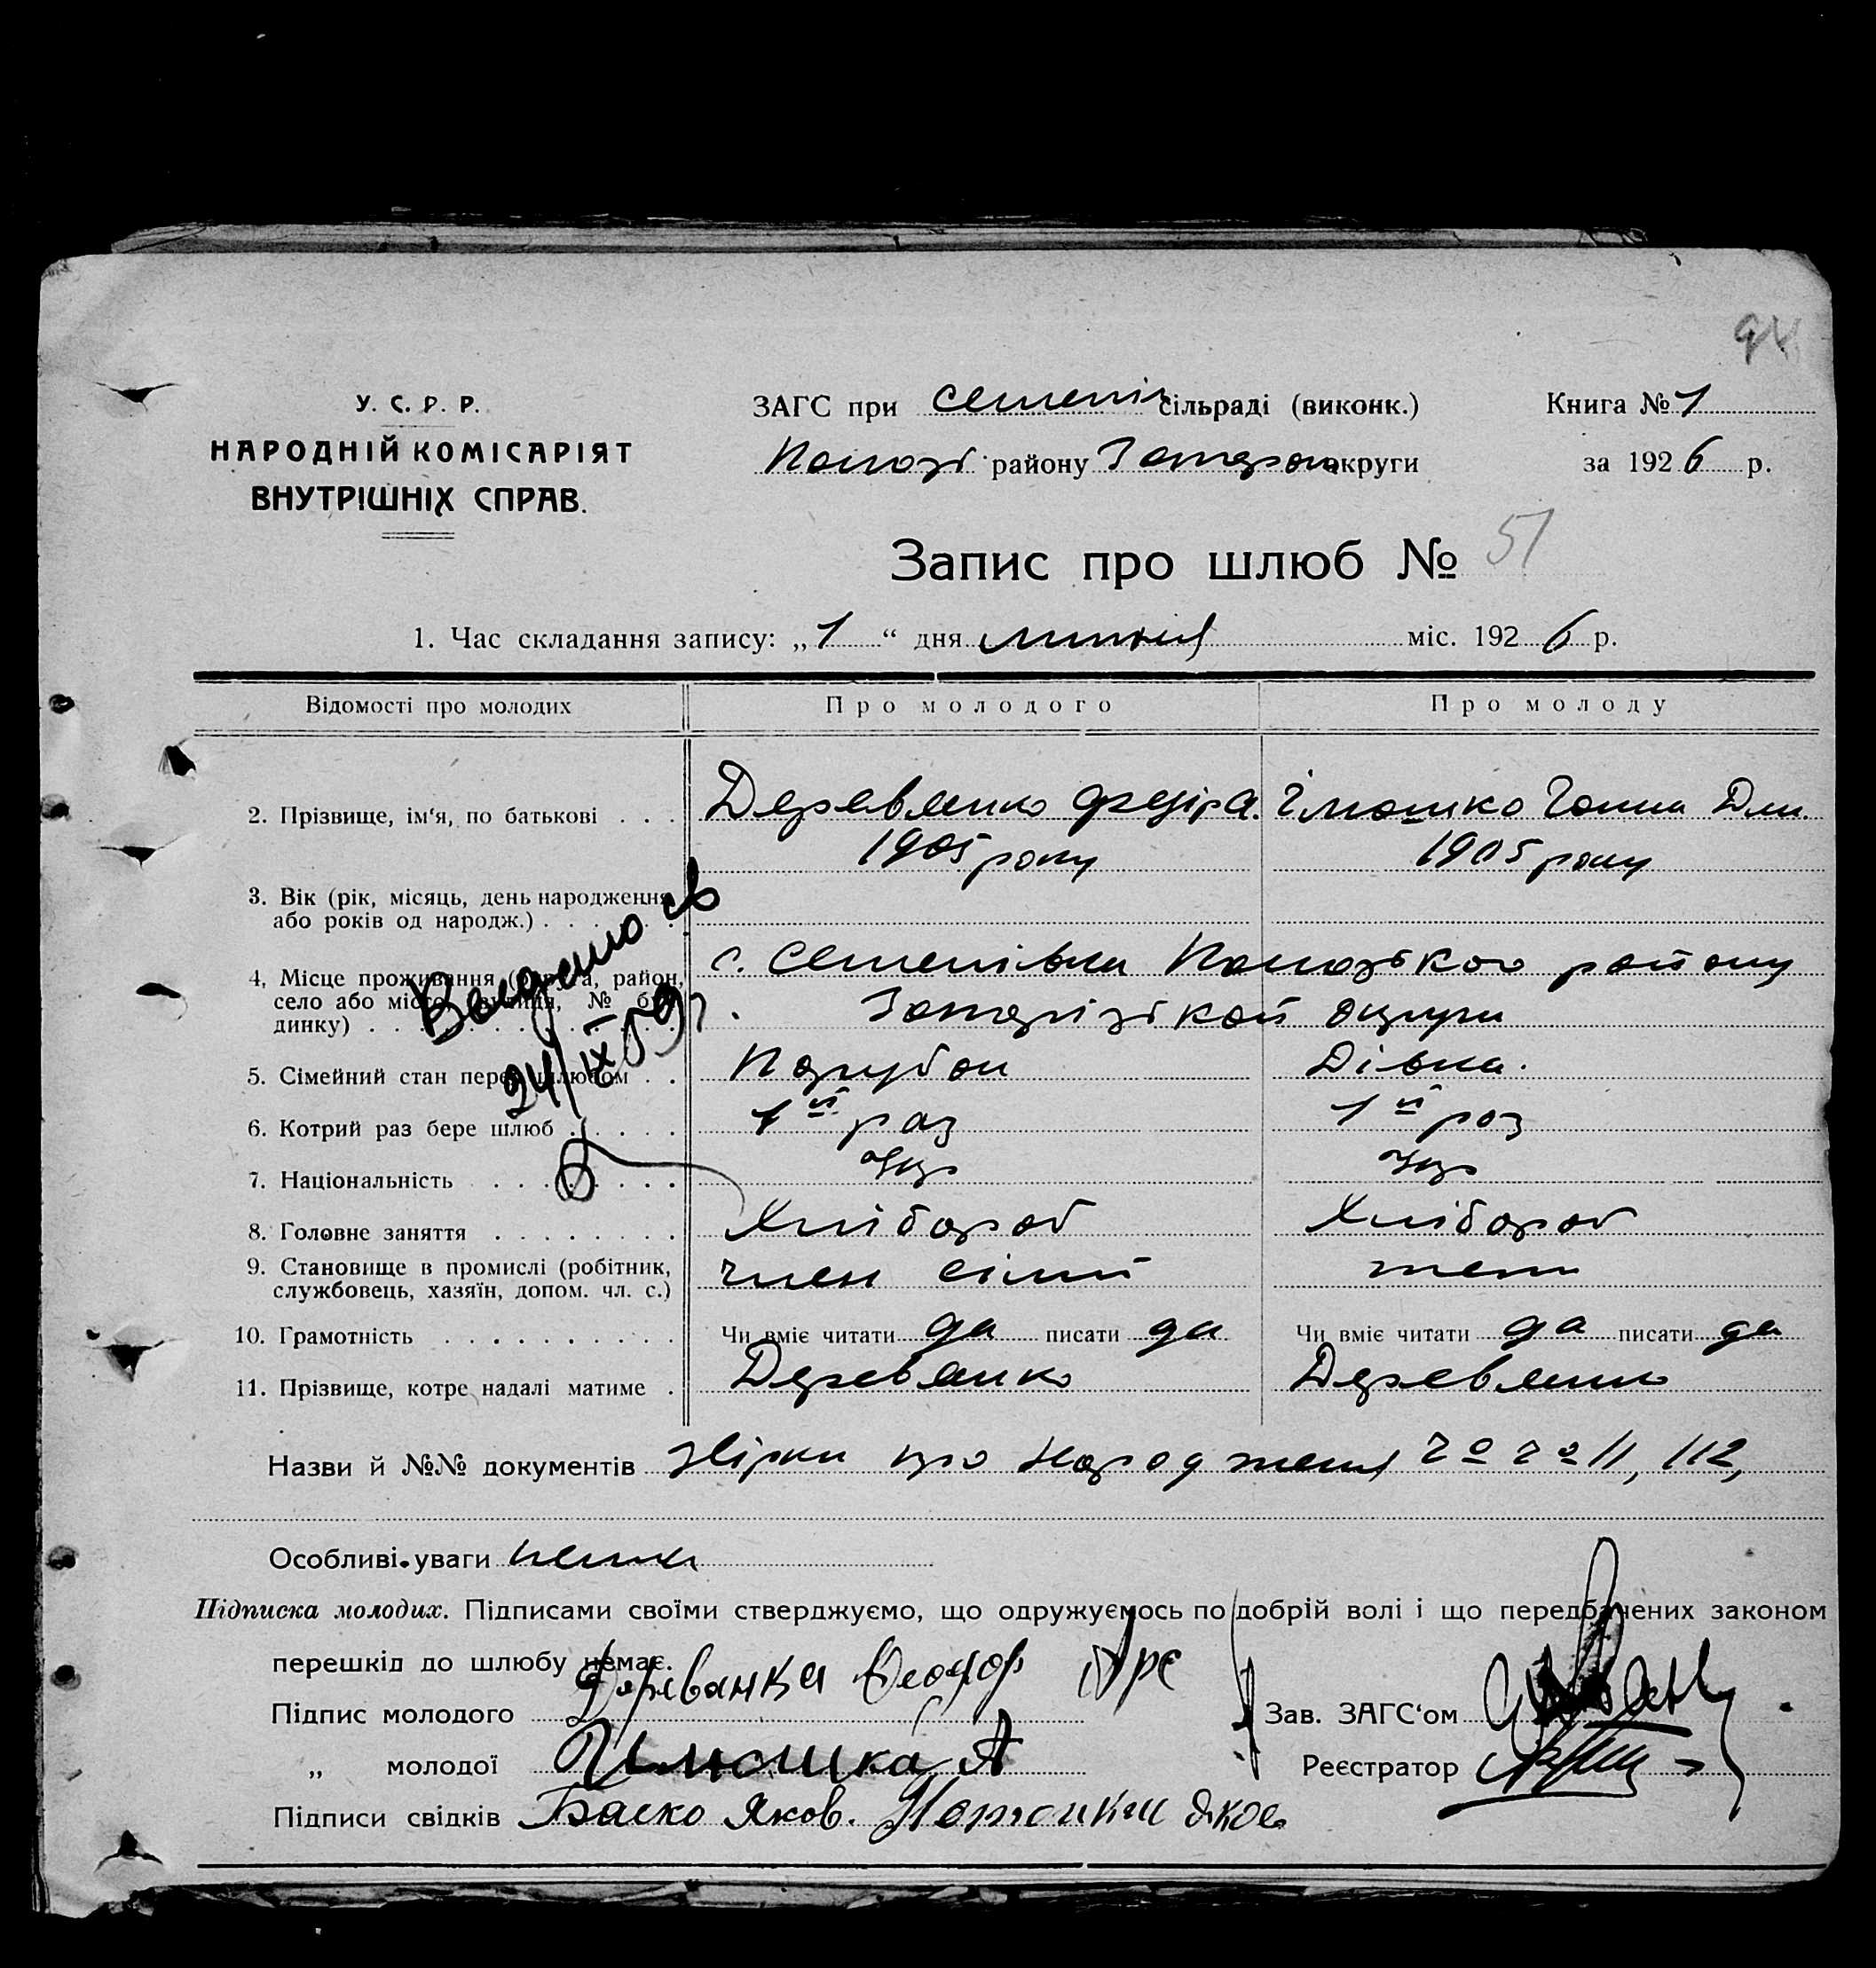 94
У. С. Р. Р.
НАРОДНІЙ КОМІСАРІЯТ
ВНУТРІШНІХ СПРАВ.
ЗАГС при Семенів сільраді (виконк.)
Комозі району Запороз округи
Книга № 1
за 1926 р.
Запис про шлюб № 51
1. Час складання запису: „1“ дня липня міс. 1926 р.
Відомості про молодих Про молодого Про молоду
2. Прізвище, ім‘я, по батькові . . . Деревянко Федір А. Ілюшко Ганна Дми.
1905 року 1905 року
3. Вік (рік, місяць, день народження
або років од народж.) . . . . . . .
4, Місце проживання (округа, район, с. Семенівки Комозького району
село або місто, вулиця, № бу-
динку) . . . Запорізікой округи
Видано св
24/IX 59 р
5. Сімейний стан перед шлюбом . . Парубок Дівка.
6. Котрий раз бере шлюб . . . . . 1й раз 1й раз
7. Національність . . . . . . . . Укр Укр
8. Головне заняття . . . . . . . . Хлібороб Хлібороб
9. Становище в промислі (робітник, член сімї теж
службовець, хазяїн, допом. чл. с.)
10. Грамотність . . . . . . . . . . Чи вміє читати да писати да Чи вміє читати да писати да
11. Прізвище, котре надалі матиме . Деревянко Деревянко
Назви й №№ документів звірки про народження 11, 112,
Особливі уваги немає
Підписка молодих. Підписами своїми стверджуємо, що одружуємось по добрій волі і що передбачених законом
перешкід до шлюбу немає.
Підпис молодого Дереванка Феодор Зав. ЗАГС‘ом
„ молодої Илюшка А Реєстратор
Підписи свідків Баско Яков. Яков